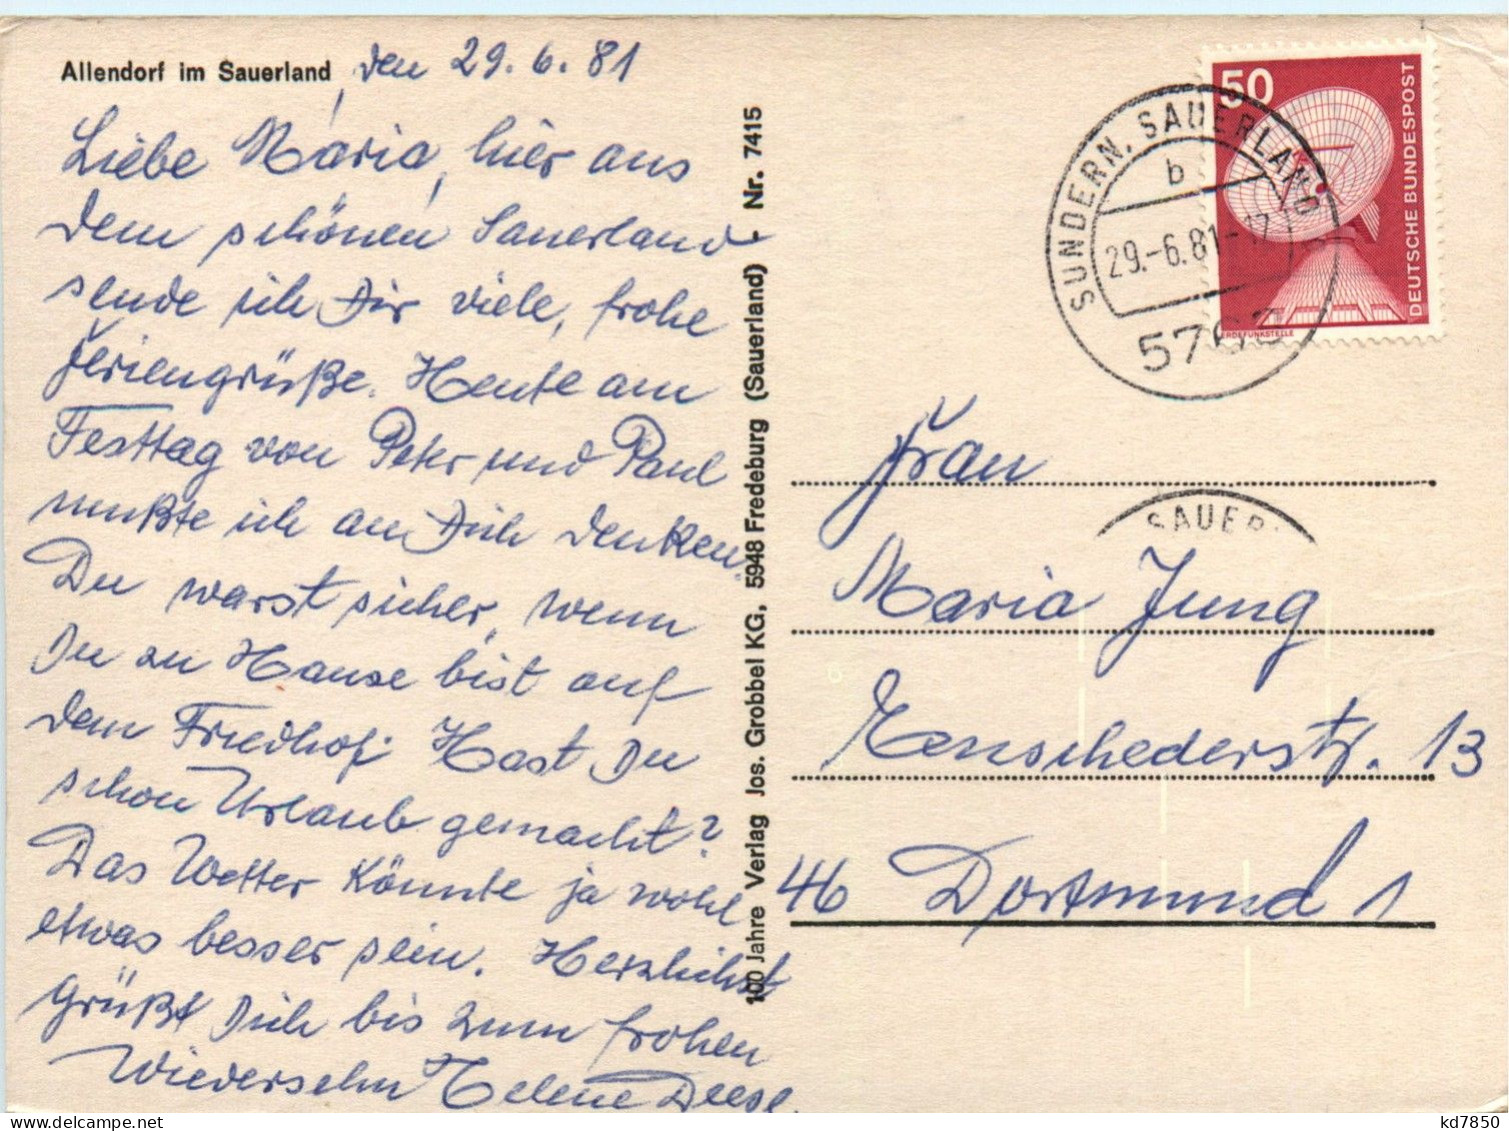 Allendorf im Sauerland, den 29.6.81
Liebe Maria, hier aus
dem schönen Sauerland
sende ich Dir viele, frohe
Feriengrüße. Heute am
Festtag von Peter und Paul
mußte ich an Dich denken.
Du warst sicher, wenn
Du zu Hause bist auf
dem Friedhof. Hast Du
schon Urlaub gemacht?
Das Wetter könnte ja wohl
etwas besser sein. Herzlichst
grüßt Dich bis zum frohen
Wiedersehn Helene
100 Jahre Verlag Jos. Grobbel KG, 5948 Fredeburg (Sauerland) · Nr. 7415
SUNDERN, SAUERLAND
b
29.-6.81-17
50
DEUTSCHE BUNDESPOST
ERDEFUNKSTELLE
SAUER
Frau
Maria Jung
Enschederstr. 13
46 Dortmund 1
kd7850